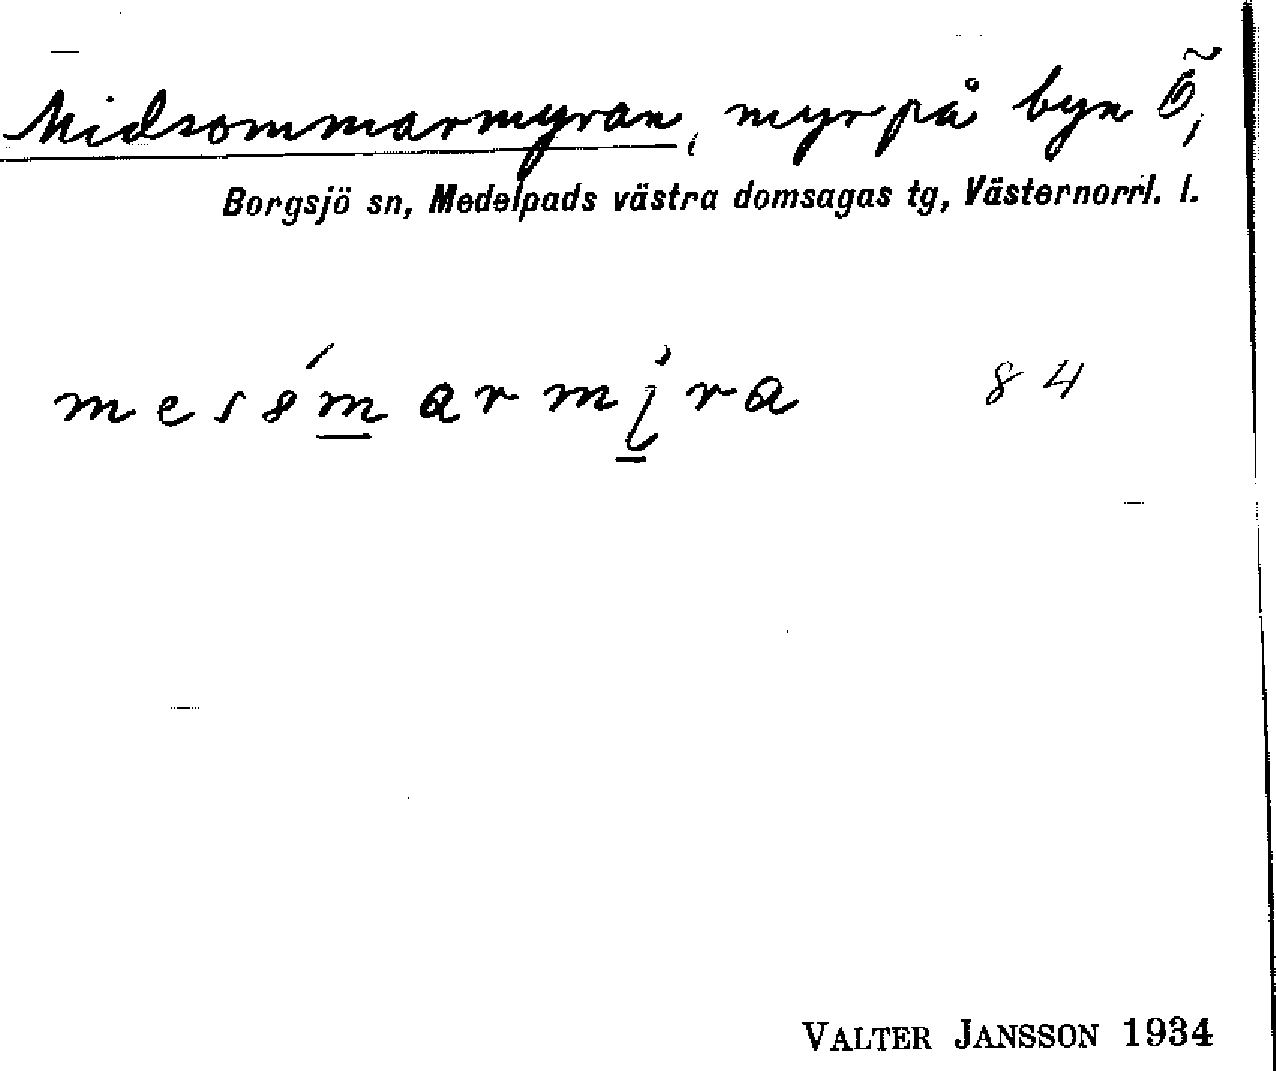 Midsommarmyran, myr på byn Ö,
Borgsjö sn, Medelpads västra domsagas tg, Västernorrl. l.
84
VALTER JANSSON 1934